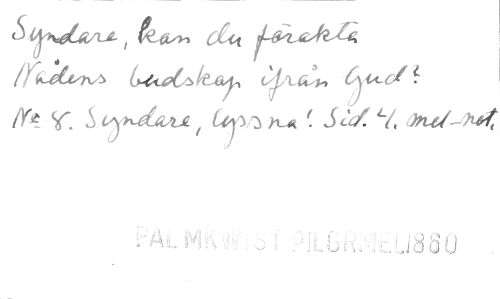 Syndare, kan du förakta
Nådens budskap ifrån Gud?
No 8. Syndare, lyssna! Sid. 4. mel-not.
PALMKWIST PILGRMEL 1860